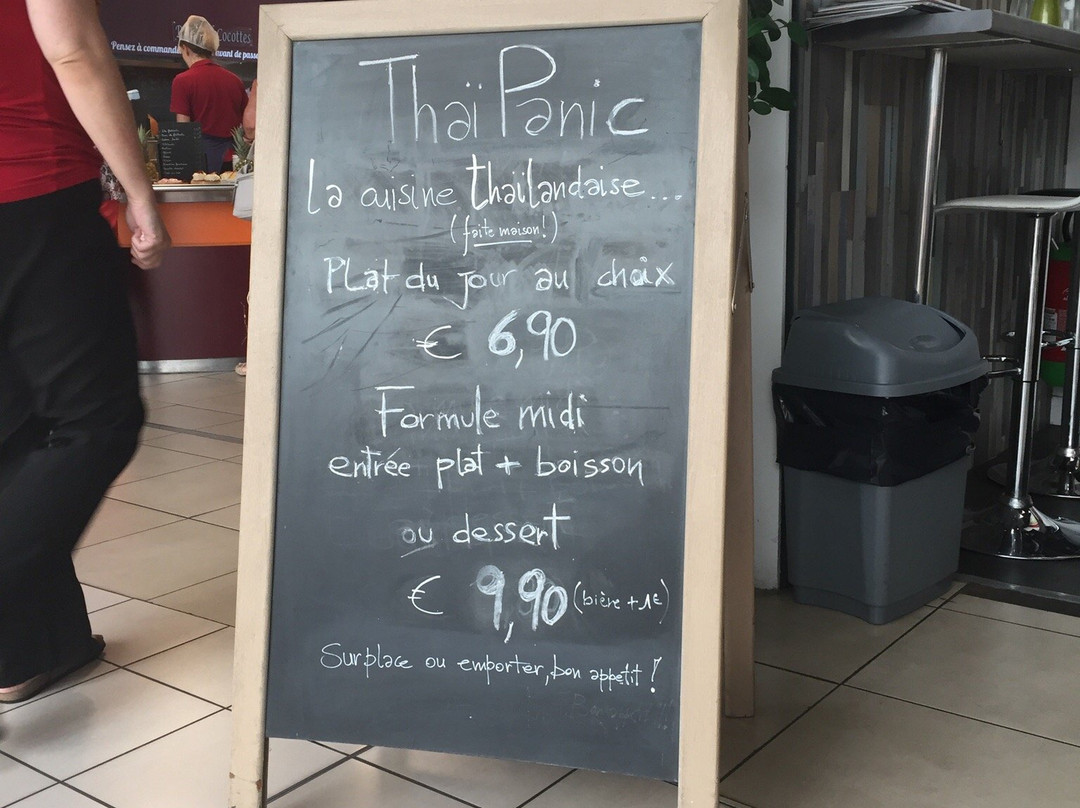 Cocottes
Pensez à
Thaï Panic
La cuisine thaïlandaise...
(faite maison!)
PLat du jour au choix
€ 6,90
Formule midi
entrée plat + boisson
ou dessert
€ 9,90 (bière +1€)
Sur place ou emporter, bon appetit !